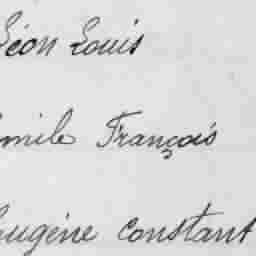 Léon Louis
Emile François
Eugène Constant